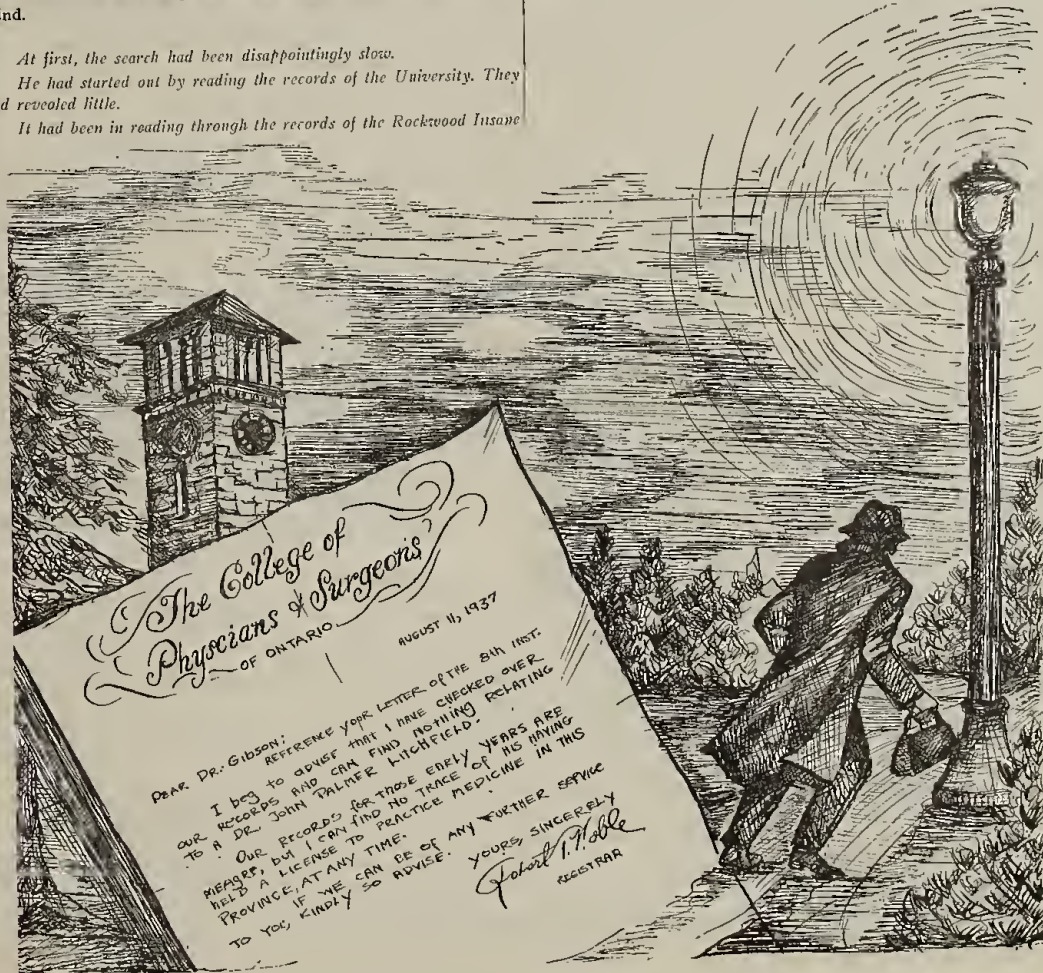 ind.
At first, the search had been disappointingly slow.
He had started out by reading the records of the University. They
d revealed little.
It had been in reading through the records of the Rockwood Insane
The College of
Physcians & Surgeons
OF ONTARIO
AUGUST 11, 1937
DEAR DR. GIBSON;
REFERENCE YOUR LETTER OF THE 8th INST.
I beg to ADVISE THAT I HAVE CHECKED OVER
OUR RECORDS AND CAN FIND NOTHING RELATING
TO A DR. JOHN PALMER LITCHFIELD.
OUR RECORDS for THOSE EARLY YEARS ARE
MEAGRE, but I CAN FIND NO TRACE of HIS HAVING
HELD A LICENSE TO PRACTICE MEDICINE IN THIS
PROVINCE, AT ANY TIME.
IF WE CAN BE OF ANY FURTHER SERVICE
TO YOU, KINDLY SO ADVISE.
YOURS, SINCERELY
Robert T. Noble
REGISTRAR